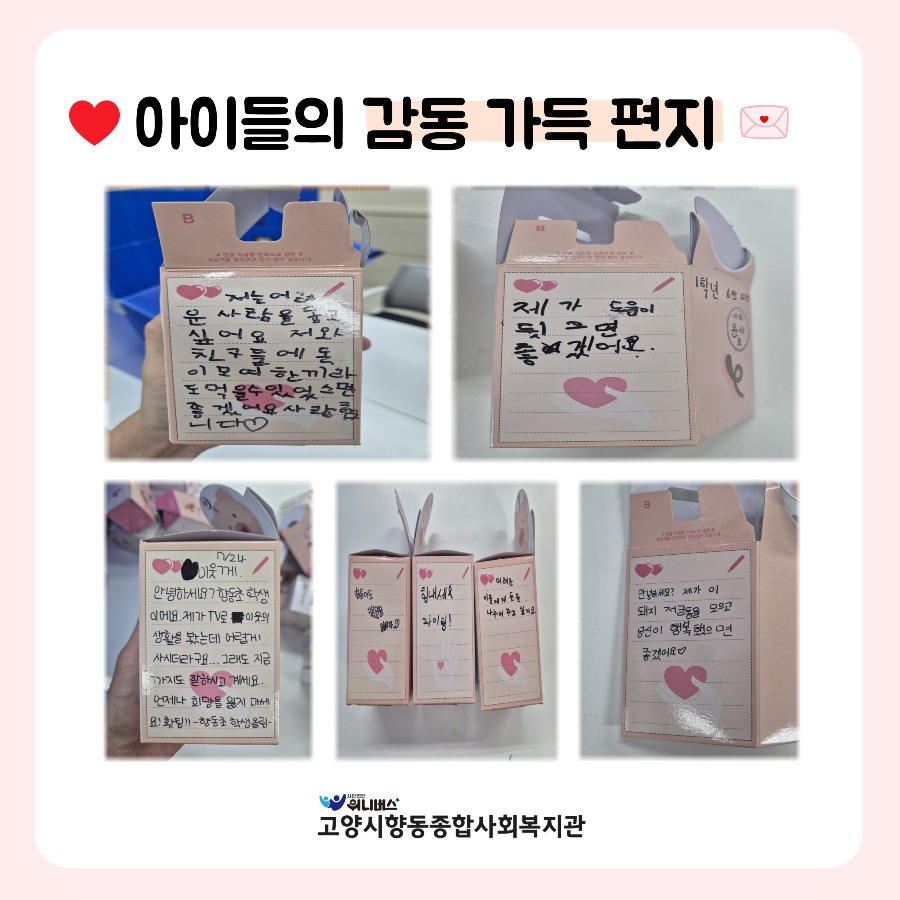 아이들의 감동 가득 편지
B
저는어려
운 사람을 돕고
싶어요 저와
친구들에 돈
이 모여 한끼라
도 먹을수있있으면
좋겠어요사랑합
니다♡
B
제가 도움이
됬으면
좋겠어요.
1학년
7/24
이웃에게.
안녕하세요? 향동초 학생
이에요. 제가 TV로 이웃의
생활을 봤는데 어렵게
사시더라구요... 그래도 지금
까지도 잘하시고 계세요..
언제나 희망을 잃지 마세
요! 홧팅!! -향동초 학생올림-
힘내세요
파이팅!
어려운
이들에게 돈을
나누어 주고 싶어요
B
안녕하세요? 제가 이
돼지 저금통을 모으고
당신이 행복했으면
좋겠어요♡
사단법인
위니버스
고양시향동종합사회복지관